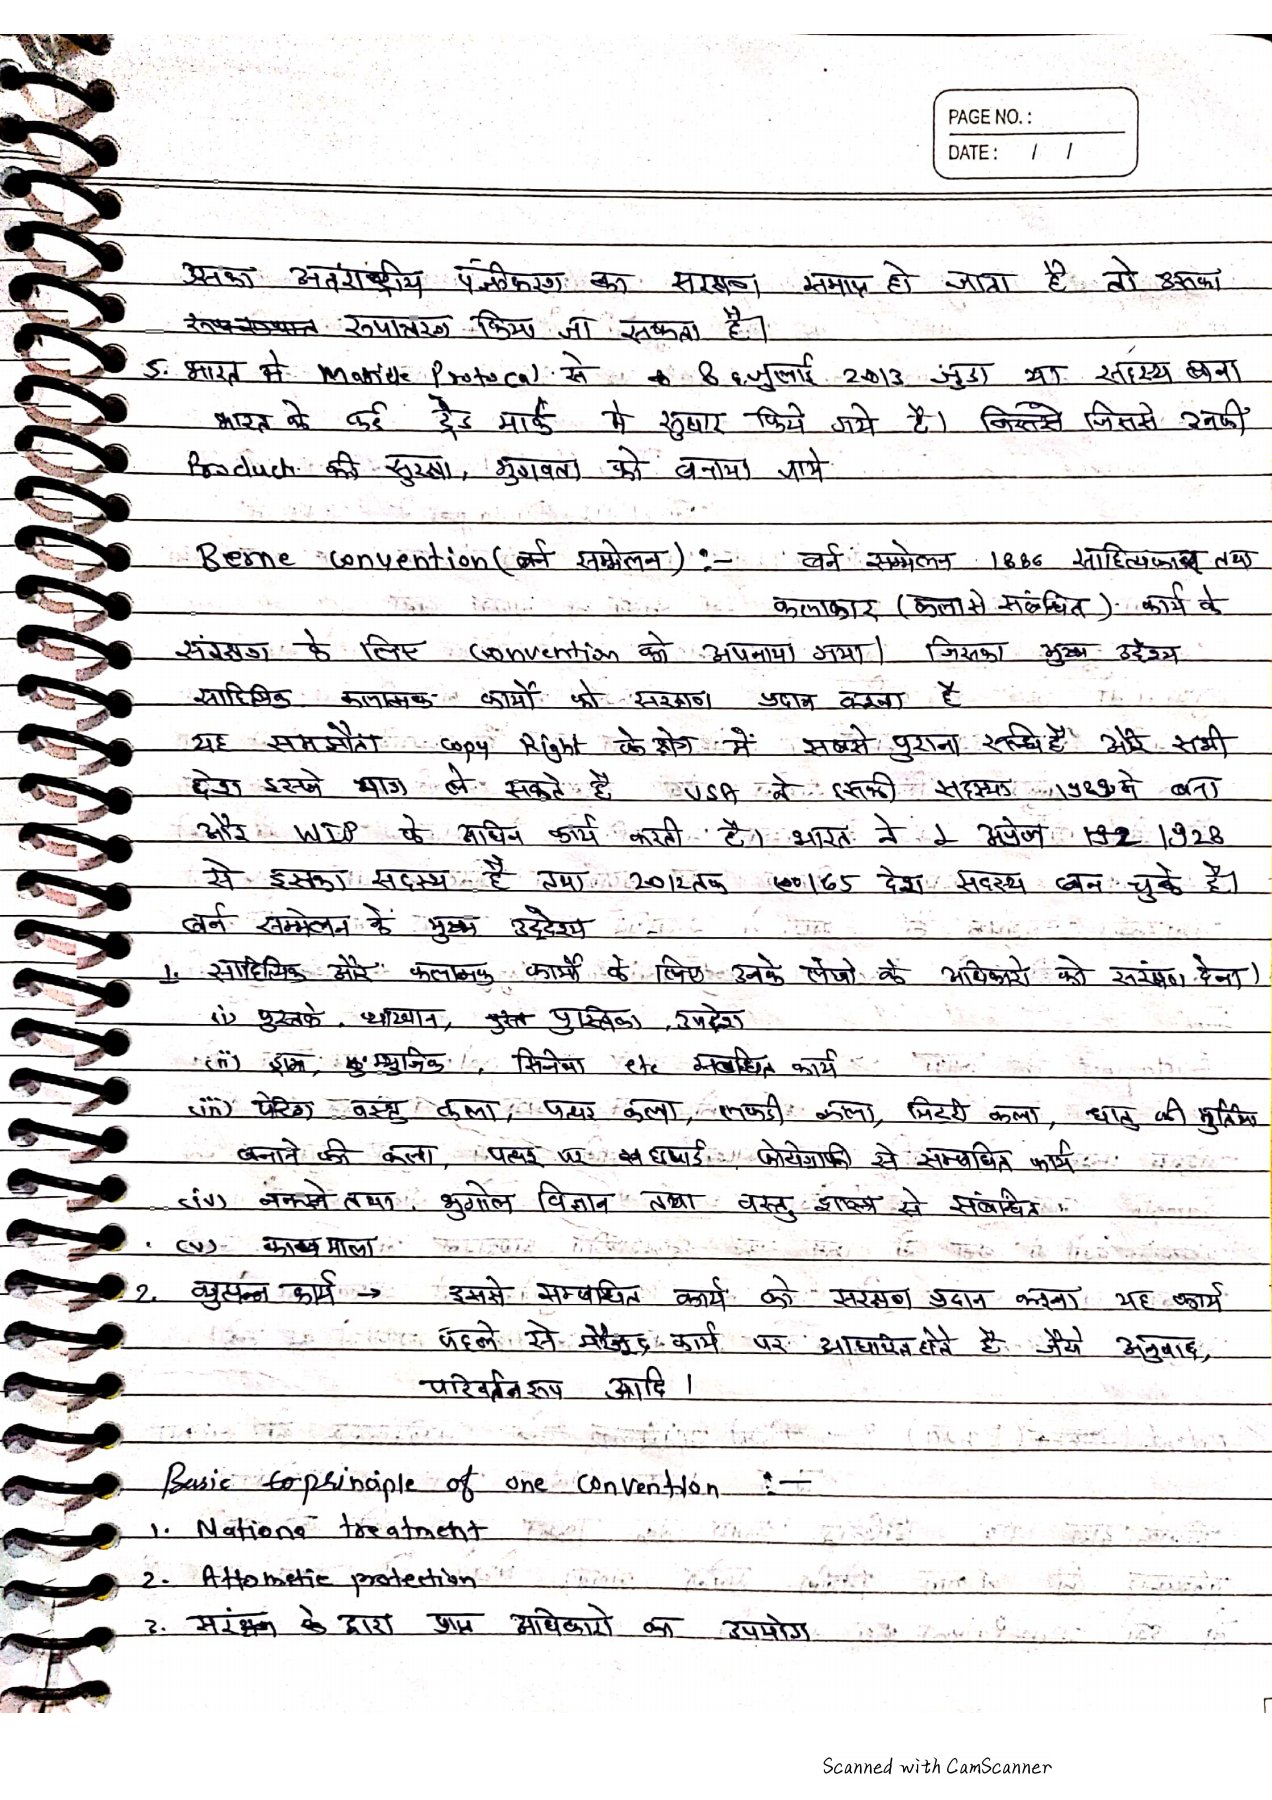 PAGE NO. :
DATE : / /
उसका अंतराष्ट्रीय पंजीकरण का सरक्षण समाप्त हो जाता है तो उसका
रूपातरण किया जा सकता है।
5. भारत मे Protocal से 8 जुलाई 2013 जुडा या सदस्य बना
भारत के कई ट्रेड मार्क मे सुधार किये गये है। जिससे जिससे उनकी
Product की सुरक्षा, गुणवता को बनाया जाये
Berne convention (बर्न सम्मेलन) :- बर्न सम्मेलन 1886 साहित्यकार तथा
कलाकार (कला से संबंधित) कार्य के
संरक्षण के लिए convention को अपनाया गया। जिसका मुख्य उद्देश्य
साहित्यिक कलात्मक कार्यो को सरक्षण प्रदान करना है
यह समझौता copy Right के क्षेत्र में सबसे पुराना सन्धि है और सभी
देश इसमे भाग ले सकते है USA ने इसकी सदस्यता 1989 मे बना
और WIP के माधिन कार्य करती है। भारत ने 1 अप्रेल 192 1928
से इसका सदस्य है तथा 2012 तक 165 देश सदस्य बन चुके है।
बर्न सम्मेलन के मुख्य उद्देश्य
1. साहित्यिक और कलात्मक कार्यो के लिए उनके लेखो के अधिकारो को सरंक्षण देना।
(i) पुस्तके, व्याख्यान, पुस्तिका, उपदेश
(ii) ड्रामा, म्युजिक, सिनेमा etc सबंधित कार्य
(iii) पेटिंग वस्तु कला, पत्थर कला, लकडी कला, मिटटी कला, धातु की मुर्तिया
बनाने की कला, पत्थर पर छपाई, फोटोग्राफी से सम्बधित कार्य
(iv) नक्शे तथा भुगोल विज्ञान तथा वस्तु शास्त्र से संबंधित
(v) काव्य माला
2. व्युत्पन्न कार्य → इससे सम्बधित कार्य को सरक्षण प्रदान करना यह कार्य
पहले से मौजुद कार्य पर आधारित होते है जैसे अनुवाद,
परिवर्तन रूप आदि।
Basic to principle of one convention :-
1. Nationa treatment
2. Attometic protection
3. सरंक्षन के द्वारा प्राप्त अधिकारो का उपयोग
Scanned with CamScanner